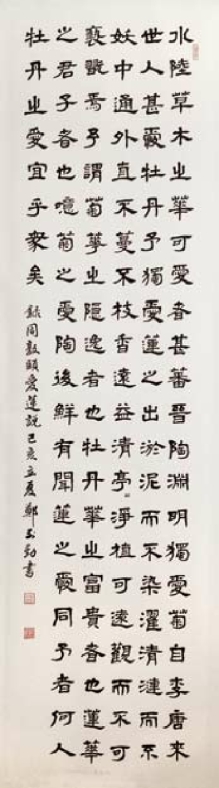 水陸草木之華可愛者甚蕃晉陶淵明獨愛菊自李唐來
世人甚愛牡丹予獨愛蓮之出淤泥而不染濯清漣而不
妖中通外直不蔓不枝香遠益清亭〻淨植可遠觀而不可
褻翫焉予謂菊華之隱逸者也牡丹華之富貴者也蓮華
之君子者也噫菊之愛陶後鮮有聞蓮之愛同予者何人
牡丹之愛宜乎衆矣
錄周敦頤愛蓮說己亥立夏鄭書